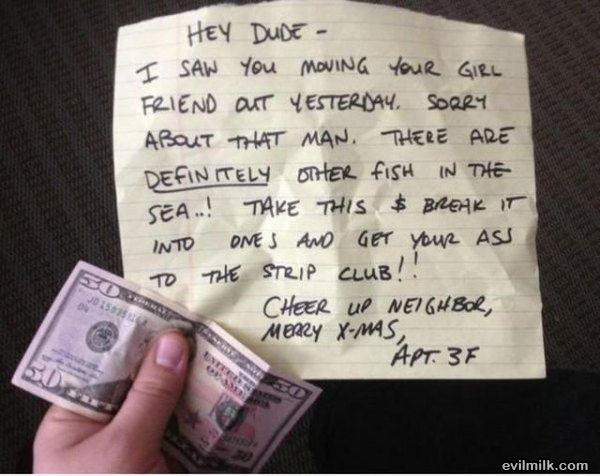 HEY DUDE -
I SAW YOU MOVING YOUR GIRL
FRIEND OUT YESTERDAY. SORRY
ABOUT THAT MAN. THERE ARE
DEFINITELY OTHER FISH IN THE
SEA..! TAKE THIS $ BREAK IT
INTO ONES AND GET YOUR ASS
TO THE STRIP CLUB!!
CHEER UP NEIGHBOR,
MERRY X-MAS,
APT. 3F
50
50
50
UNITED STATES
OF AMERICA
50
evilmilk.com